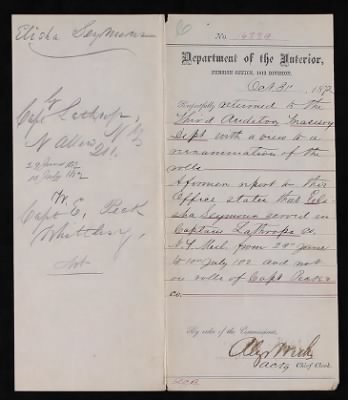 Elisha Seymour
Capt Lathrop,
N.Y.
29 June to
10 July 1812
Capt E. Peck
Whittlesey,
Not
6
No.
Department of the Interior,
PENSION OFFICE, 1812 DIVISION.
Oct. 31, 187
Respectfully returned to the
Third Auditor Treasury
Dept with a view to a
reexamination of the
rolls.
A former report to this
Office states that Eli-
sha Seymour served in
Captain Lathrops Co.
N.Y. Mil. from 29th June
to 10th July 12 and not
on rolls of Capt Pecks
Co.
By order of the Commissioner,
Acty Chief Clerk.